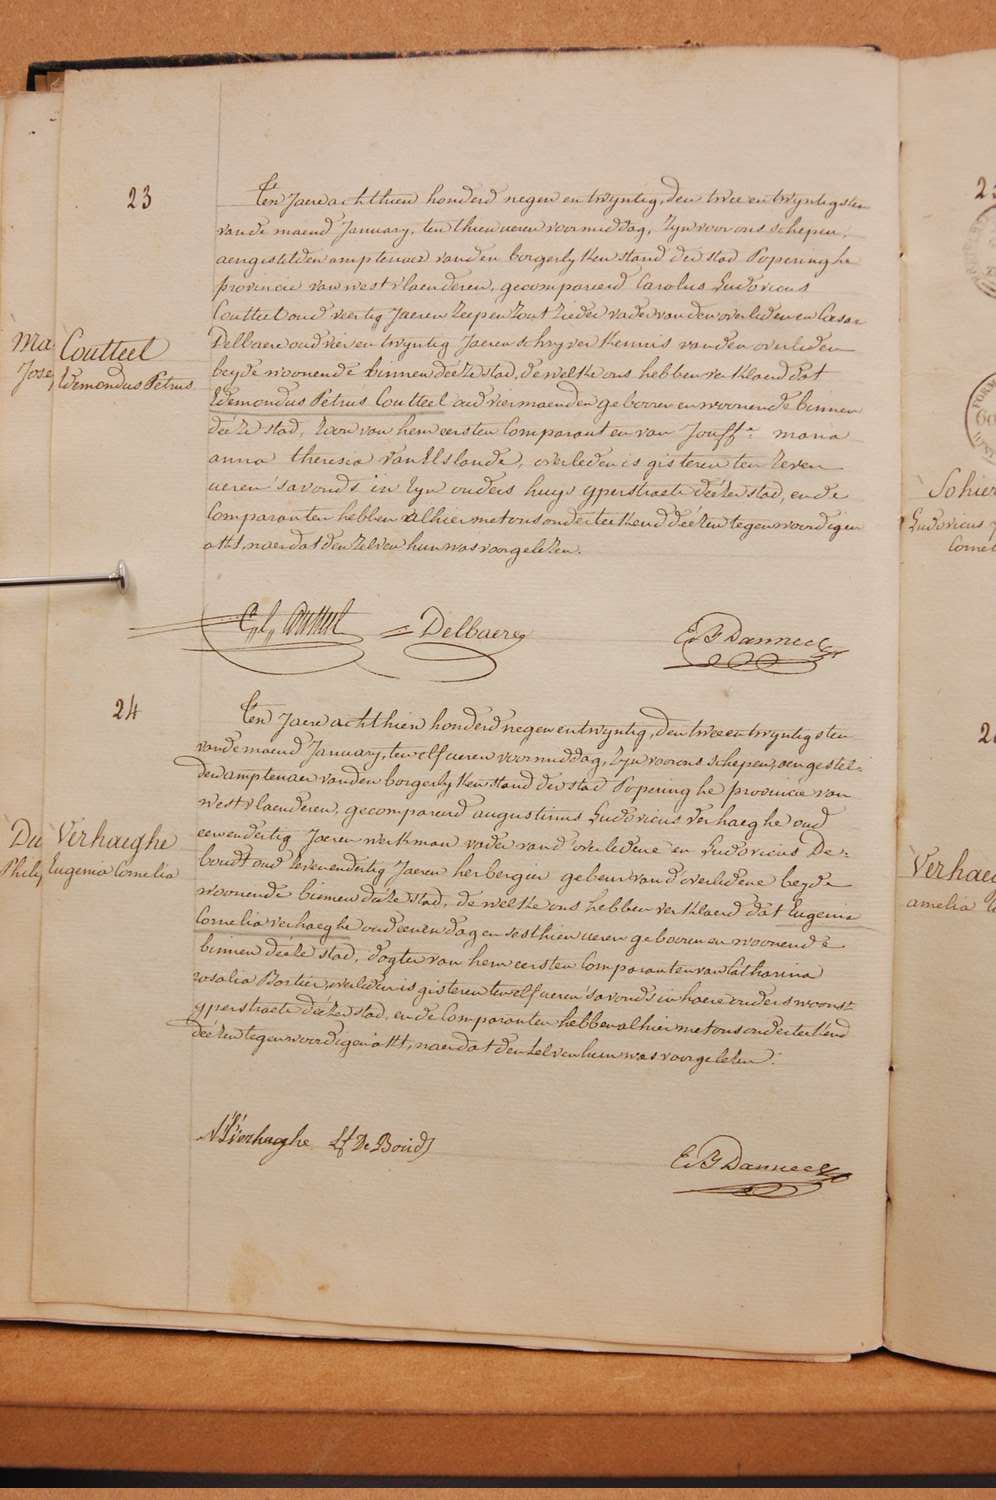 23
Ten Jaere achthien honderd negen en twyntig, den twee en twyntigsten
van de maend January, ten thien ueren voormiddag, Zyn voor ons schepen,
aengestelden amptenaer van den borgerlyken stand der stad Poperinghe
provincie van west vlaenderen, gecompareerd Carolus Ludovicus
Coutteel oud veertig Jaeren Zeepen Zout Zieder vader van den overleden en Cæsar
Delbaere oud vier en twyntig Jaeren schryver kennis van den overleden
beyde woonende binnen deeze stad, de welke ons hebben verklaerd dat
Edemondus Petrus Coutteel oud vier maenden geboren en woonende binnen
deéze stad, Zoon van hem eersten Comparant en van Jouffe. maria
anna theresia VanElslande, overleden is gisteren ten Zeven
ueren 'savonds in Zyn ouders huys yperstraete deézer stad, en de
Comparanten hebben alhier met ons onderteekend deézen tegenwoordigen
akt, naer dat den zelven hun was voorgelezen.
Coutteel
Edemondus Petrus
Ma
Jose
C, L, Coutteel
Delbaere
E B Danneel
24
Ten Jaere achthien honderd negen en twyntig, den twee en twyntigsten
van de maend January, ten elf ueren voormiddag, Zyn voor ons schepen, aengestel-
den amptenaer van den borgerlyken stand der stad Poperinghe provincie van
west vlaenderen, gecompareerd augustinus Ludovicus Verhaeghe oud
eenendertig Jaeren werkman vader vand' overledene en Ludovicus De-
boudt oud Zevenendertig Jaeren herbergier gebeur vand' overledene beyde
woonende binnen deéze stad, de welke ons hebben verklaerd dat Eugenia
Cornelia verhaeghe oud eenen dag en sesthien ueren gebooren en woonende
binnen deéze stad, dogter van hem eersten Comparant en van Catharina
rosalia Bortier, overleden is gisteren ten elf ueren 'savonds in haere ouders woonst
yperstraete deézer stad, en de Comparanten hebben alhier met ons onderteekend
deézen tegenwoordigen akt, naer dat den zelven hun was voorgelezen.
Verhaeghe
Eugenia Cornelia
Du
Phily
Verhaeghe
De Boudt
E B Danneel
Sohier
Ludovicus
Cornel
Verhaeg
amelia